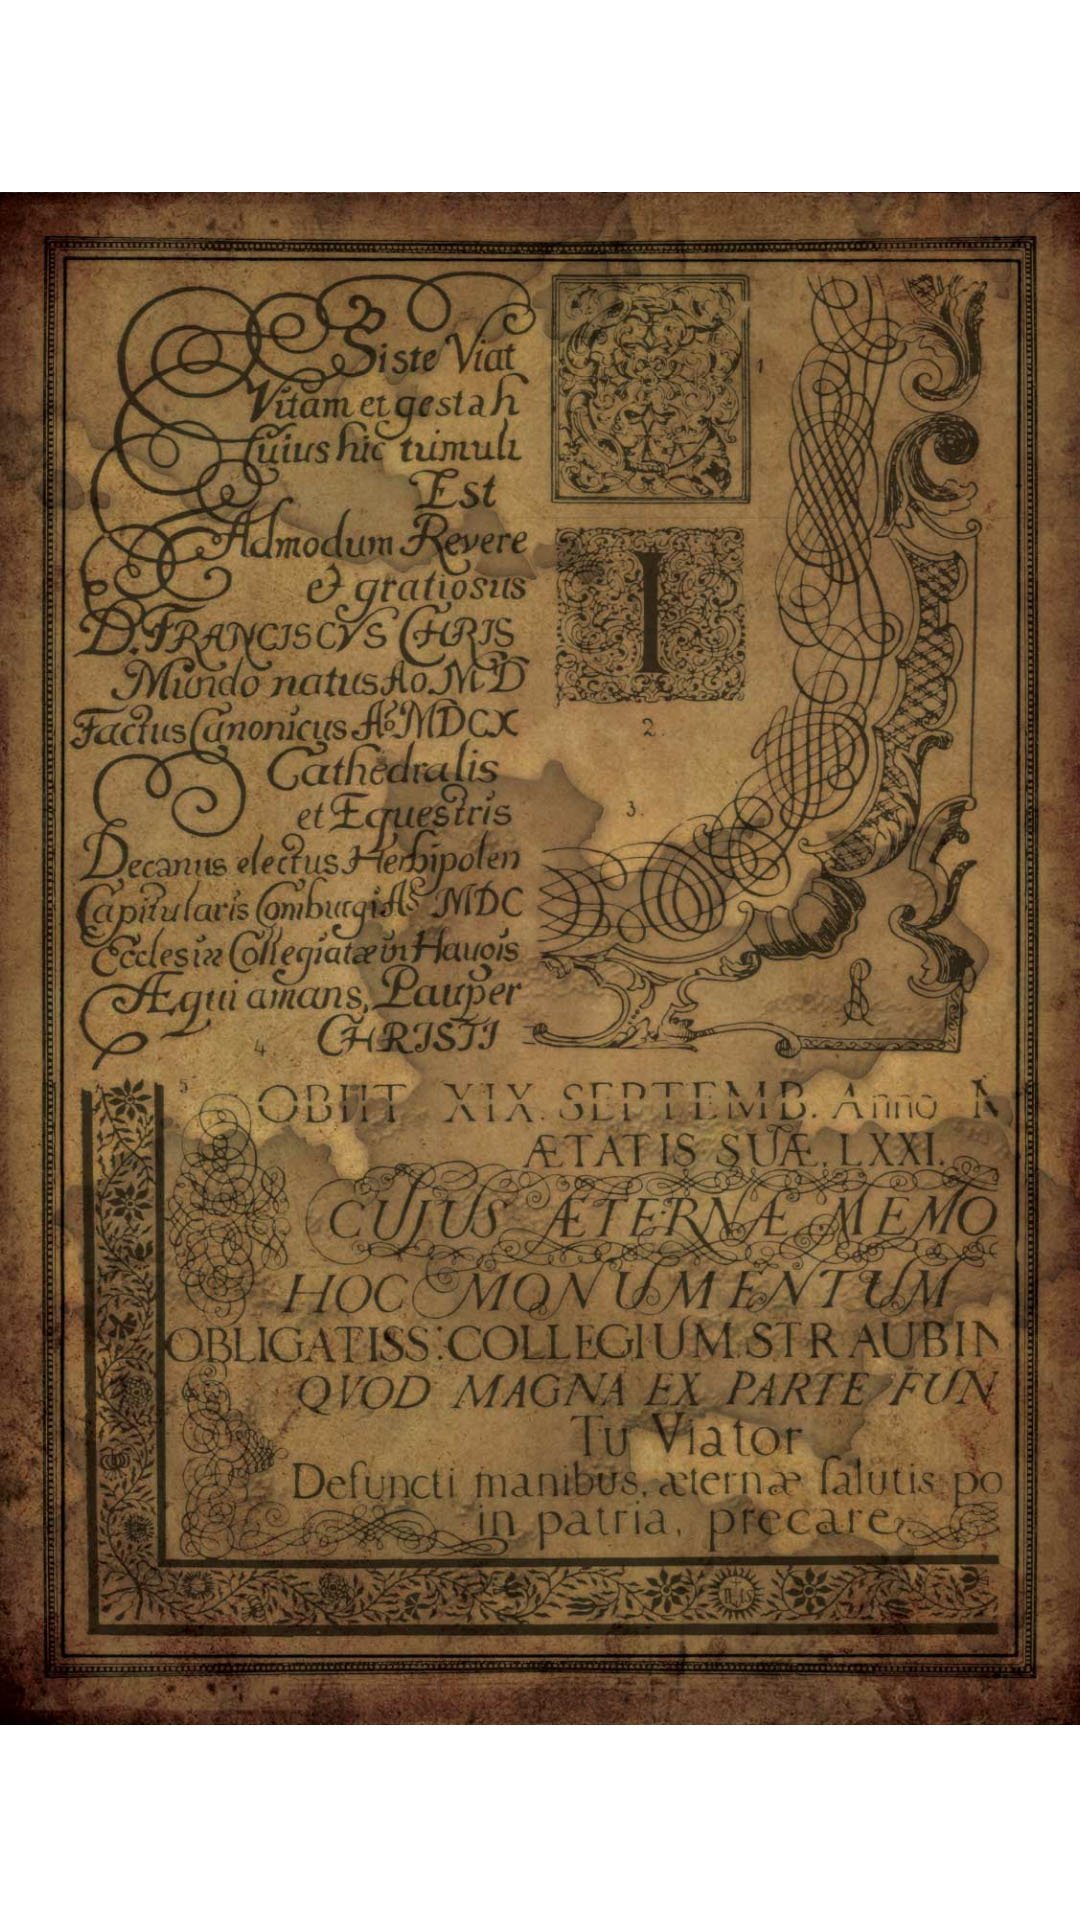 Siste Viat
Vitam et gesta h
cuius hic tumuli
Est
Admodum Revere
& gratiosus
D. FRANCISCVS CHRIS
Mundo natus Ao. MD
Factus Canonicus Ao. MDCX
Cathedralis
et Equestris
Decanus electus Herbipolen
Capitularis Comburgi Ao MDC
Ecclesiæ Collegiatæ in Hauois
Æqui amans, Pauper
CHRISTI
4
1
I
2.
3.
5
OBIIT XIX. SEPTEMB. Anno M
ÆTATIS SUÆ. LXXI.
CUJUS ÆTERNÆ MEMO
HOC MONUMENTUM
OBLIGATISS: COLLEGIUM STRAUBIN
QVOD MAGNA EX PARTE FUN
Tu Viator
Defuncti manibus, æternæ salutis po
in patria, precare.
IHS